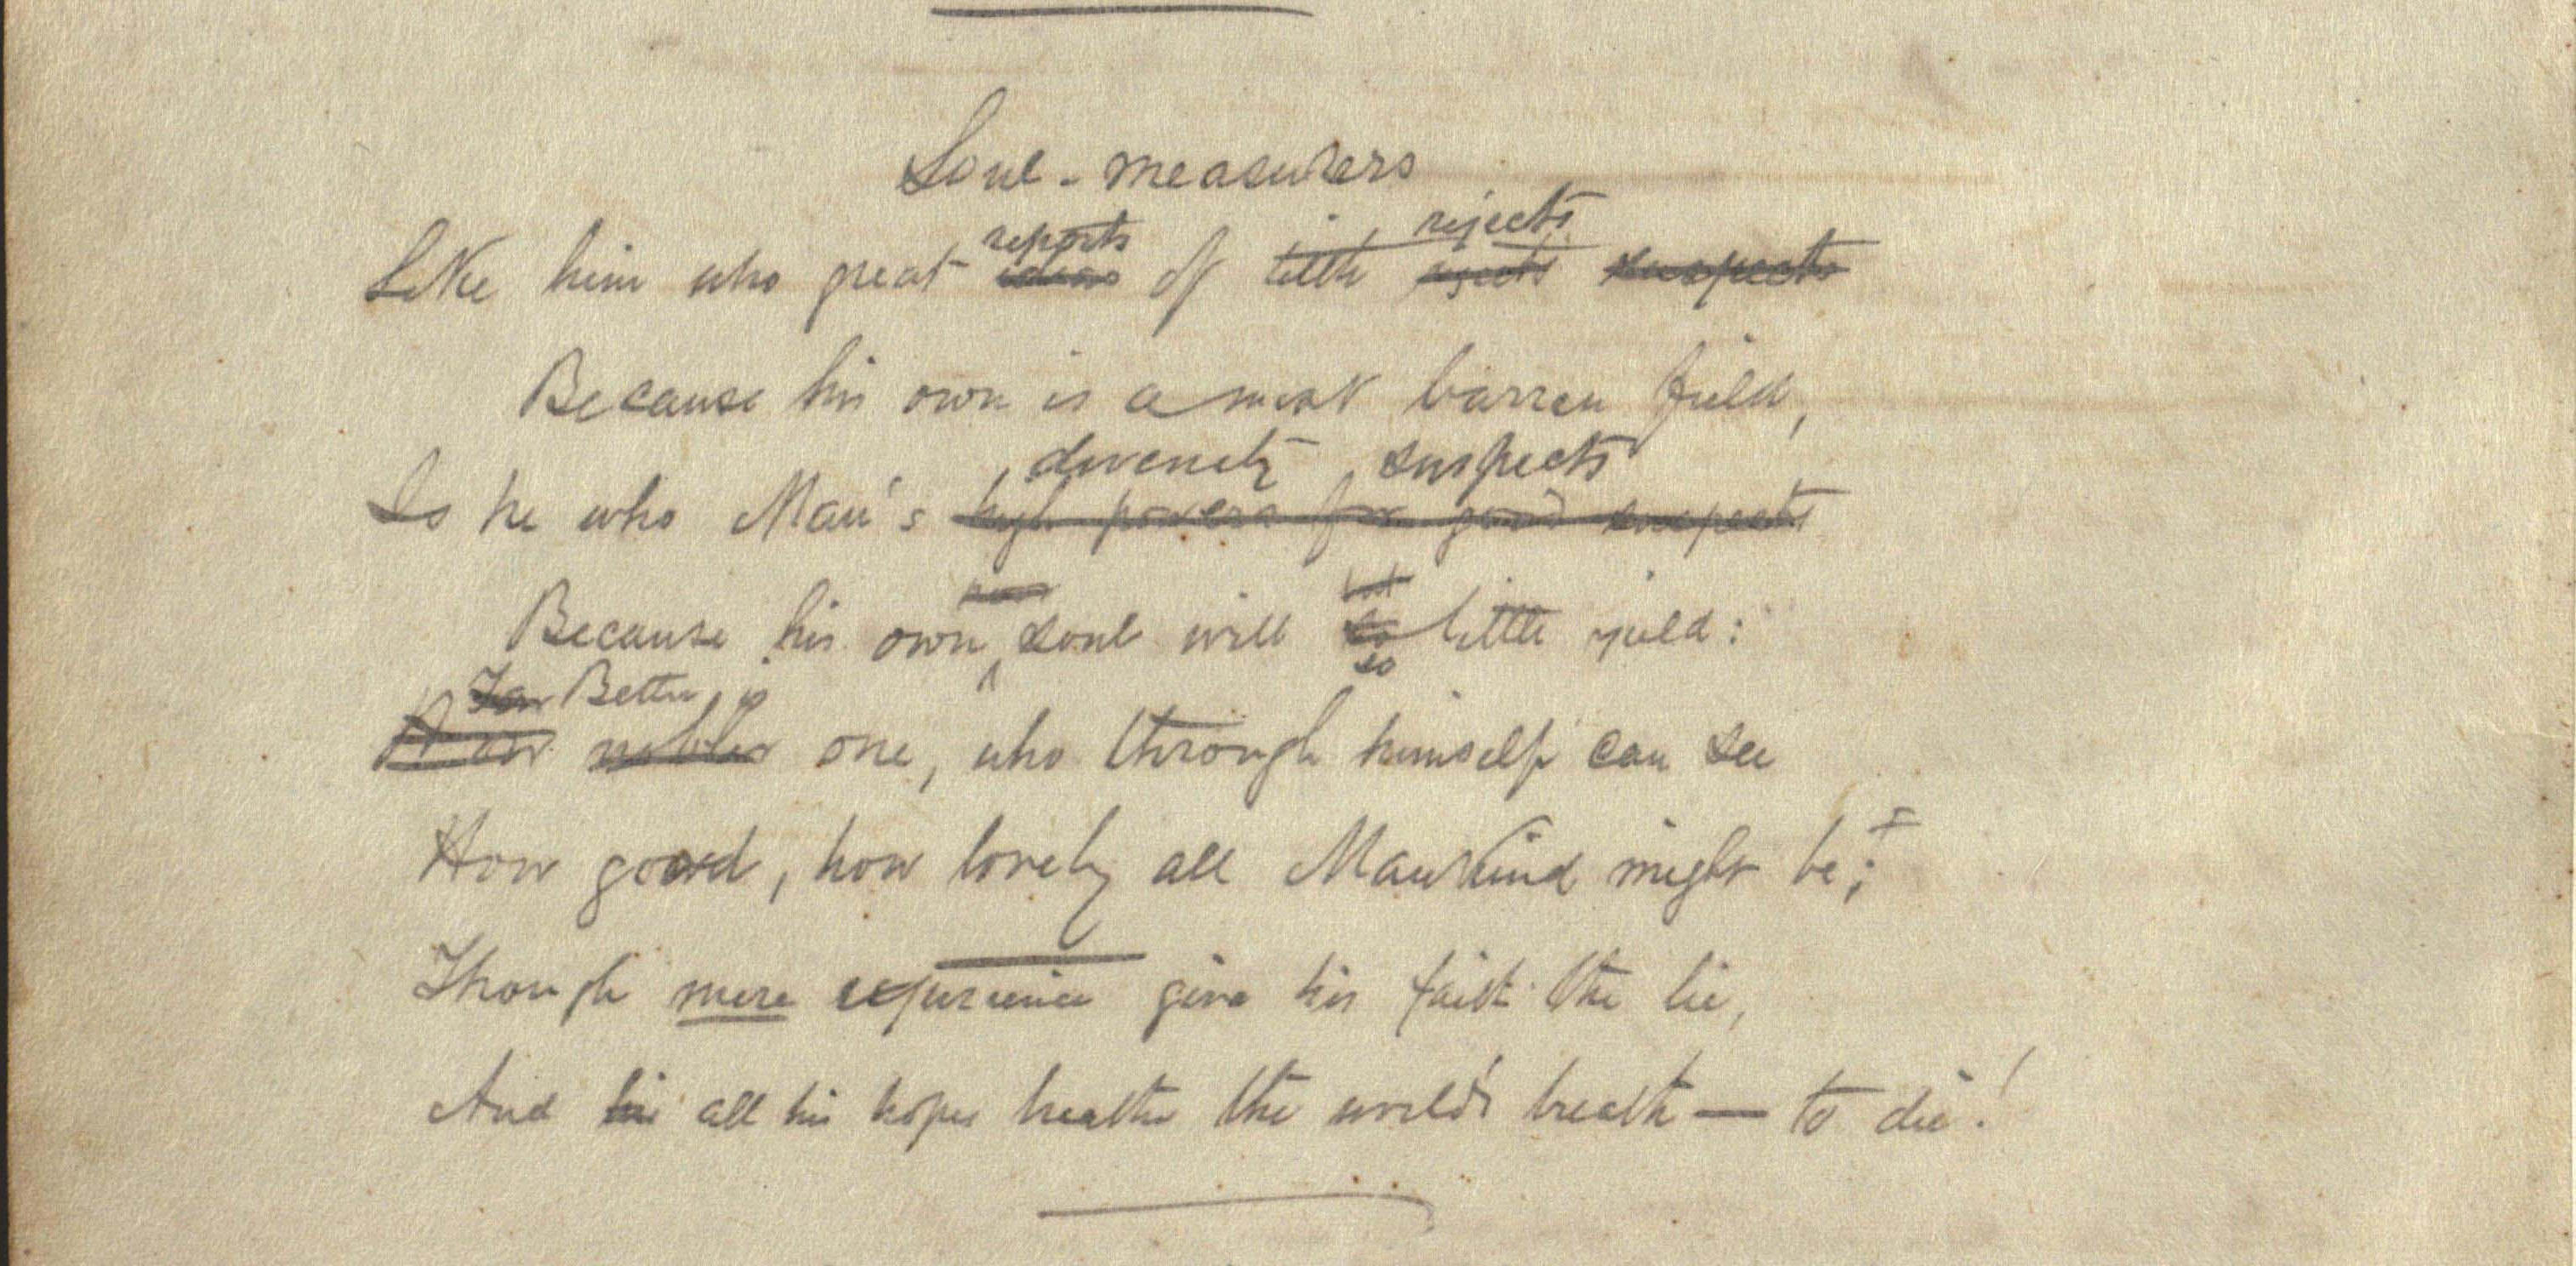 Soul-measurers
reports rejects
Like him who great ideas of tilth rejects suspects
Because his own is a weak barren field,
divinity suspects
Is he who Man's high powers for good suspects
Because his own soul will so little yield:
so
Far Better is
nobler one, who through himself can see
How good, how lovely all Mankind might be;
Though mere experience give his faith the lie,
And his all his hopes breathe the world's breath — to die!